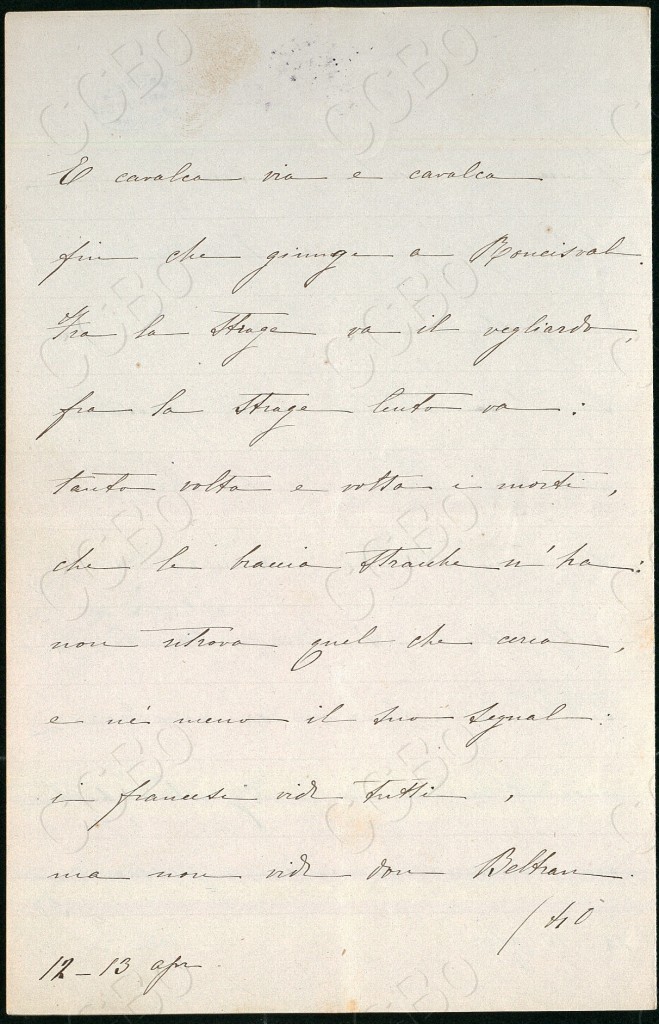 E cavalca via e cavalca
fin che giunge a Roncisval.
Fra la strage va il vegliardo,
fra la strage lento va:
tanto volta e volta i morti,
che le braccia stanche n'ha:
non ritrova quel che cerca,
e né meno il suo segnal:
i francesi vide tutti,
ma non vide don Beltran.
/40
12–13 apr
CCBO